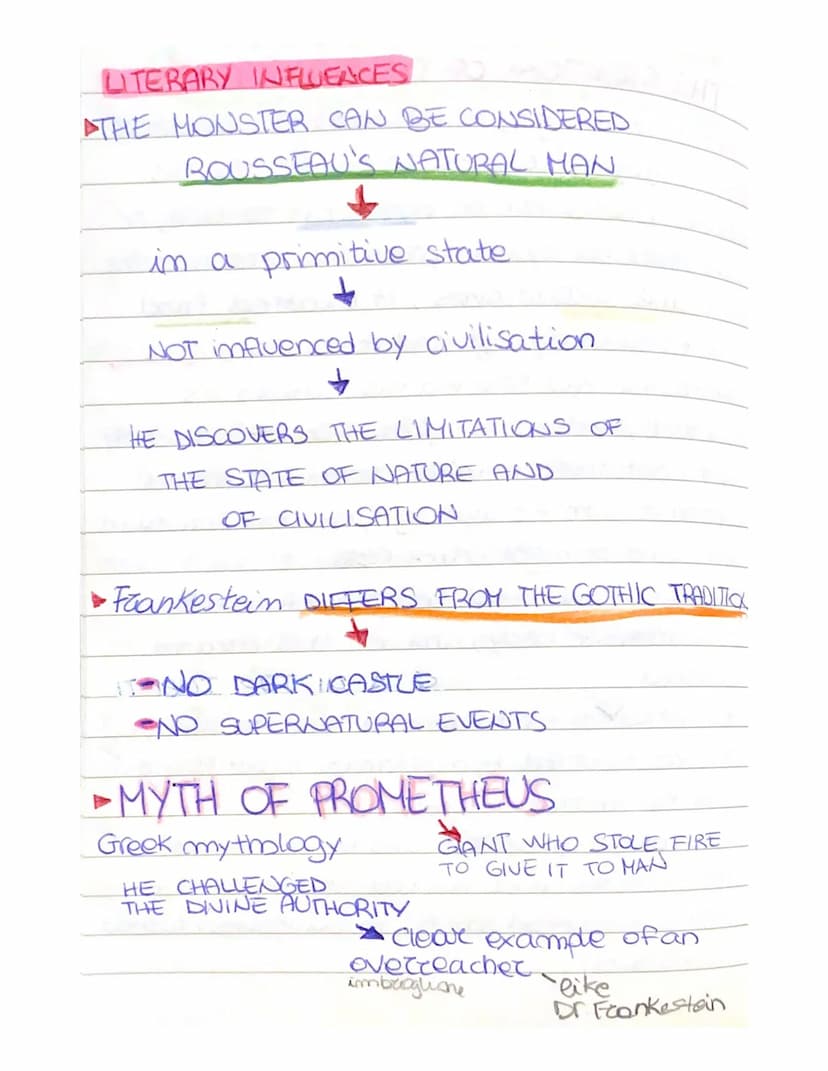 LITERARY INFLUENCES
THE MONSTER CAN BE CONSIDERED
ROUSSEAU'S NATURAL MAN
in a primitive state
NOT influenced by civilisation
HE DISCOVERS THE LIMITATIONS OF
THE STATE OF NATURE AND
OF CIVILISATION
Frankestein DIFFERS FROM THE GOTHIC TRADITIO
-NO DARK CASTLE
-NO SUPERNATURAL EVENTS
MYTH OF PROMETHEUS
Greek mythology
GIANT WHO STOLE FIRE
TO GIVE IT TO MAN
HE CHALLENGED
THE DIVINE AUTHORITY
clear example of an
overreacher
imbroglione
like
Dr Frankestein